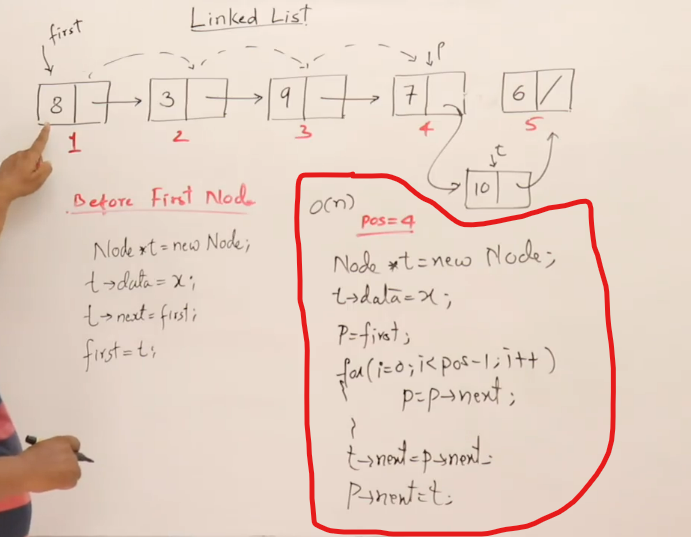 Linked List
first
p
8
3
9
7
6 /
1
2
3
4
5
t
10
Before First Node
Node *t=new Node;
t→data=x;
t→next=first;
first=t;
O(n)
pos=4
Node *t=new Node;
t→data=x;
P=first;
for(i=0;i<pos-1;i++)
{
p=p→next;
}
t→next=p→next;
P→next=t;